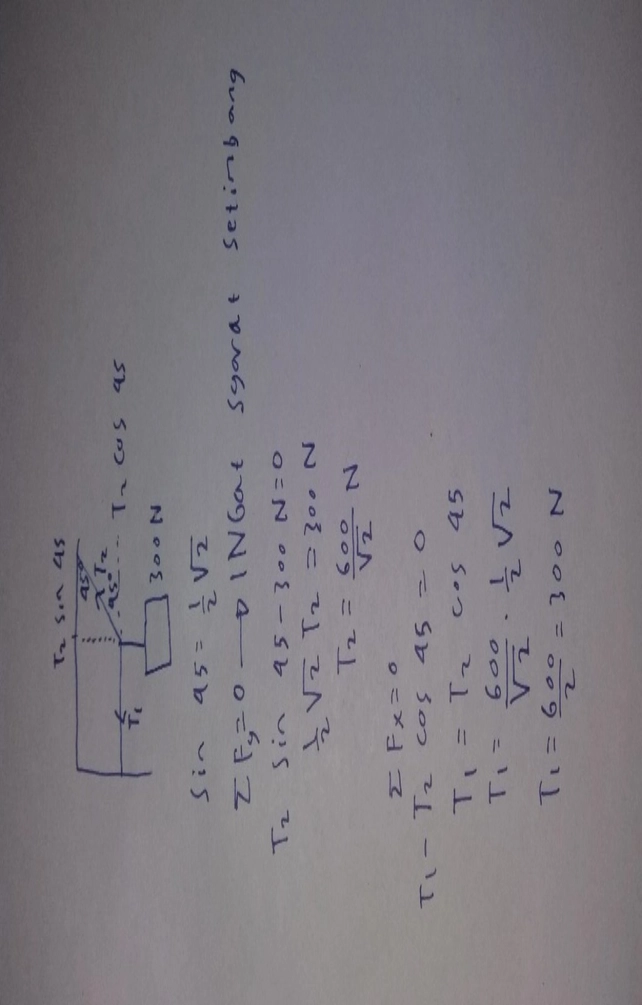 T₂ sin 45
45°
T₂
45°
T₂ cos 45
T₁
300 N
Sin 45 = ½ √2
Σ Fy = 0 → INGat syarat setimbang
T₂ sin 45 - 300 N = 0
½ √2 T₂ = 300 N
T₂ = 600/√2 N
Σ Fx = 0
T₁ - T₂ cos 45 = 0
T₁ = T₂ cos 45
T₁ = 600/√2 . ½ √2
T₁ = 600/2 = 300 N